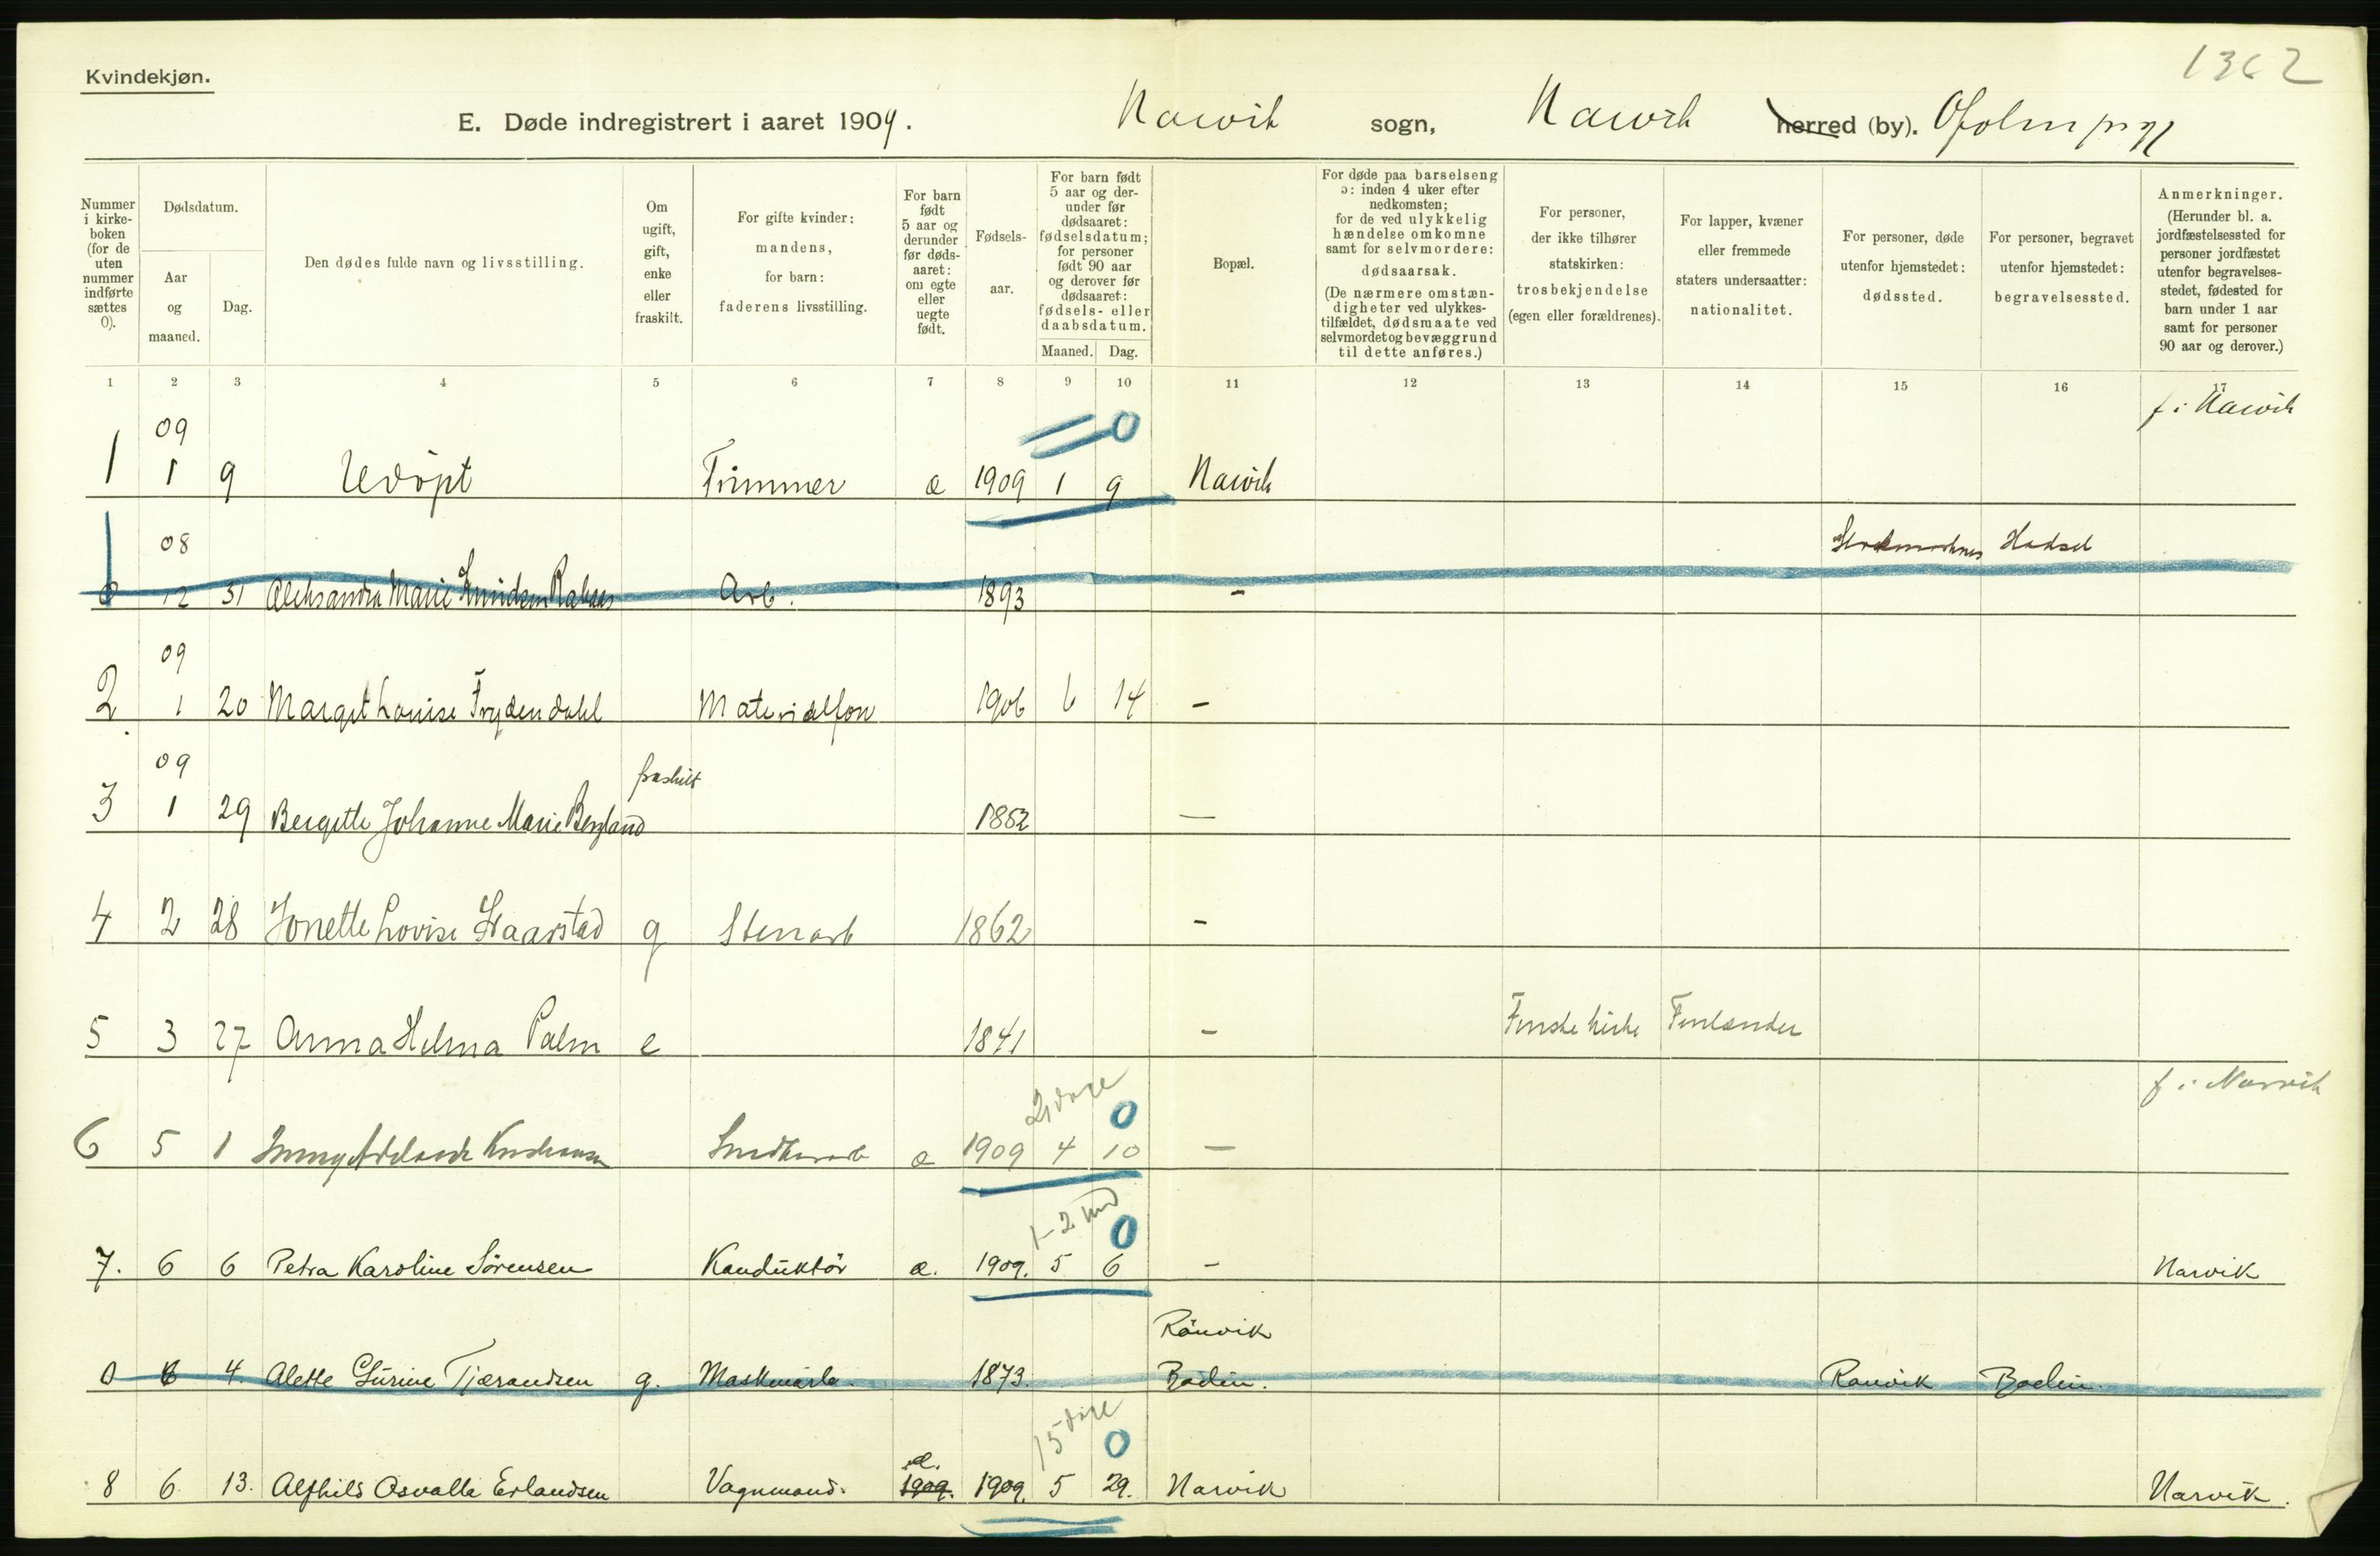 1362
Kvindekjøn.
E. Døde indregistrert i aaret 1909. Narvik sogn, Narvik herred (by).
Nummer i kirke-boken (for de uten nummer indførte sættes 0).
Dødsdatum.
Aar og maaned.
Dag.
Den dødes fulde navn og livsstilling.
Om ugift, gift, enke eller fraskilt.
For gifte kvinder: mandens, for barn: faderens livsstilling.
For barn født 5 aar og derunder før døds-aaret: om egte eller uegte født.
Fødsels-aar.
For barn født 5 aar og der-under før dødsaaret: fødselsdatum; for personer født 90 aar og derover før dødsaaret: fødsels- eller daabsdatum.
Maaned. Dag.
Bopæl.
For døde paa barselseng ɔ: inden 4 uker efter nedkomsten; for de ved ulykkelig hændelse omkomne samt for selvmordere: dødsaarsak. (De nærmere omstæn-digheter ved ulykkes-tilfældet, dødsmaate ved selvmordet og bevæggrund til dette anføres.)
For personer, der ikke tilhører statskirken: trosbekjendelse (egen eller forældrenes).
For lapper, kvæner eller fremmede staters undersaatter: nationalitet.
For personer, døde utenfor hjemstedet: dødssted.
For personer, begravet utenfor hjemstedet: begravelsessted.
Anmerkninger. (Herunder bl. a. jordfæstelsessted for personer jordfæstet utenfor begravelses-stedet, fødested for barn under 1 aar samt for personer 90 aar og derover.)
1 2 3 4 5 6 7 8 9 10 11 12 13 14 15 16 17
f: Narvik
09 0
1 1 9 Udöpt Trimmer æ 1909 1 9 Narvik
08 Stokmarknes Hadsel
0 12 31 Aleksandra Marie Knudsen Arb. 1893 -
09
2 1 20 Margit Louise Frydendahl Materialforv 1906 6 14 -
09 fraskilt
3 1 29 Bergitte Johanne Marie Bergland 1852 -
4 2 28 Jonette Lovise Haarstad g Stenarb 1862 -
5 3 27 Anna Helma Palm e 1841 - Finske kirke Finlænder
21 dage 0 f: Narvik
6 5 1 Adelaide Kristiansen æ 1909 4 10 -
1-2 md 0
7. 6 6 Petra Karoline Sörensen Konduktör æ. 1909. 5 6 - Narvik
Rönvik
0 6 4. Alette Tjærandsen g. Maskinarb. 1873. Bodin. Rönvik Bodin.
15 dage 0
æ.
8 6 13. Alfhild Osvalla Erlandsen Vognmand. 1909. 1909. 5 29. Narvik Narvik.